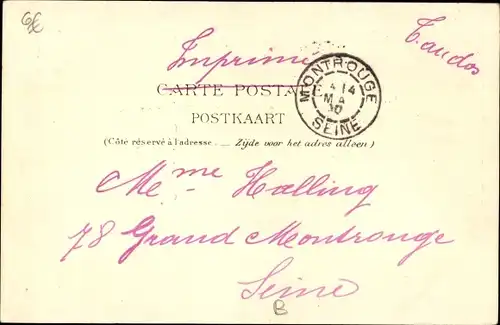 6E
Imprimé
Tandos
MONTROUGE
4
14
MA
SEINE
CARTE POSTA
POSTKAART
(Côté réservé à l'adresse. — Zijde voor het adres alleen)
Mme Halling
78 Grand Montrouge
Seine
B